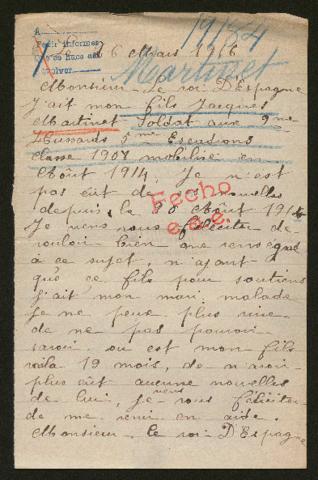 A
Pedir informes
Que se hace al
volver
19184
26 Mars 1916
Martinet
Monsieur Le roi D'espagne
J'ait mon fils Jacques
Martinet Soldat aux 9me
Hussards 5me Escadrons
classe 1908 mobilisé en
Août 1914. Je n'est
pas eüt de nouvelles
depuis le 30 Août 1914
Fecho
Je viens vous féliciter de
vouloir bien me
à ce sujet, n'ayant
que ce fils pour soutiens
j'ait mon mari malade
Je ne peux plus vivre
de ne pas pouvoir
savoir ou est mon fils
voila 19 mois, de n'avoir
plus eüt aucune nouvelles
de lui, Je viens vous féliciter
de me venir en aide
Monsieur le roi D'Espagne